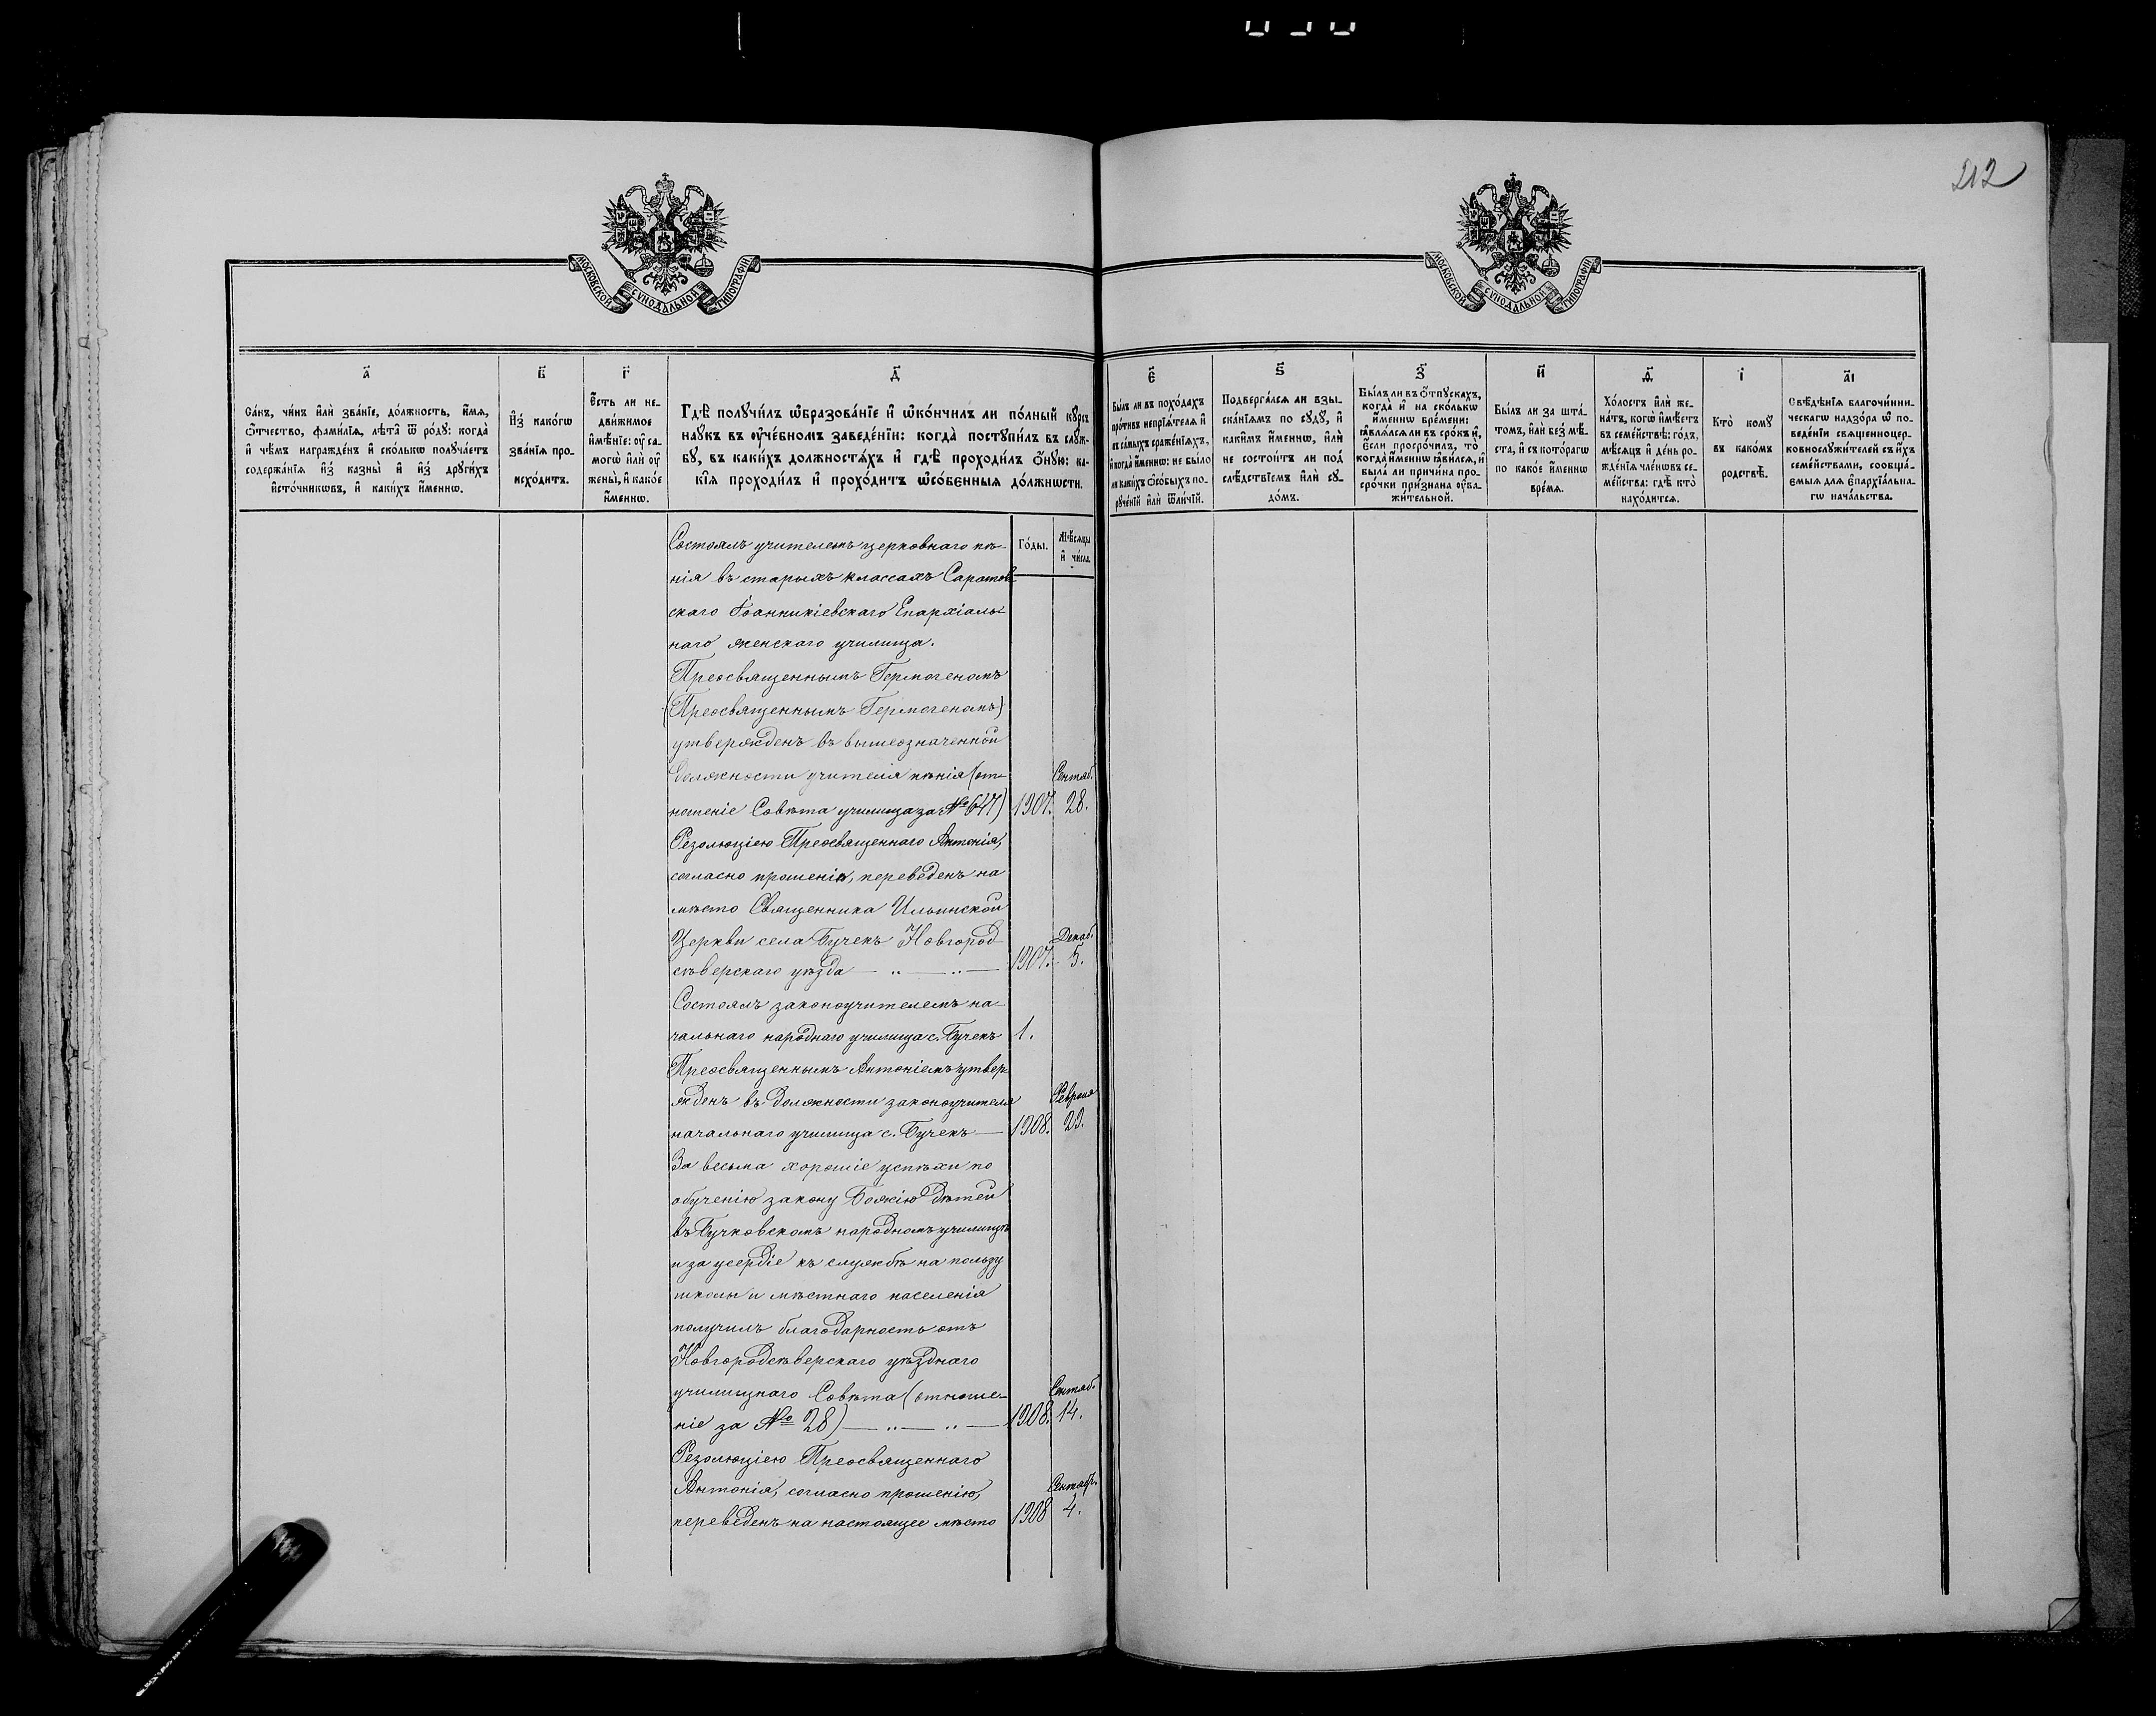 212
МОСКОВСКОЙ СѴНОДАЛЬНОЙ ТИПОГРАФІИ
МОСКОВСКОЙ СѴНОДАЛЬНОЙ ТИПОГРАФІИ
а҃
Са́нъ, чи́нъ и҆лѝ зва́нїе, до́лжность, и҆́мѧ,
ѻ҆́тчество, фами́лїѧ, лѣ́та ѿ ро́дꙋ: когда̀
и҆ чѣ́мъ награжде́нъ и҆ ско́лькѡ получа́етъ
содержа́нїѧ и҆з̾ казны̀ и҆ и҆з̾ други́хъ
и҆сто́чникѡвъ, и҆ каки́хъ и҆́меннѡ.
в҃
И҆з̾ како́гѡ
зва́нїѧ про-
исхо́дитъ.
г҃
Е҆́сть ли не-
дви́жимое
и҆мѣ́нїе: ᲂу҆ са-
могѡ̀ и҆лѝ ᲂу҆
жены̀, и҆ како́е
и҆́меннѡ.
д҃
Гдѣ̀ получи́лъ ѡ҆бразова́нїе и҆ ѡ҆ко́нчилъ ли по́лный ку́рсъ
нау́къ въ ᲂу҆че́бномъ заведе́нїи: когда̀ поступи́лъ въ слу́ж-
бу, въ каки́хъ должностѧ́хъ и҆ гдѣ̀ проходи́лъ ѻ҆́ную: ка-
кі̑ѧ проходи́лъ и҆ прохо́дитъ ѡ҆со́бенныѧ до́лжнѡсти.
є҃
Бы́лъ ли въ похо́дахъ
про́тивъ непрїѧ́телѧ и҆
въ са́мыхъ сраже́нїѧхъ,
и҆ когда̀ и҆́меннѡ: не бы́ло
ли каки́хъ ѻ҆со́быхъ по-
руче́нїй и҆лѝ ѿли́чїй.
ѕ҃
Подверга́лсѧ ли взы-
ска́нїѧмъ по суду̀, и҆
каки̑мъ и҆́меннѡ, и҆лѝ
не состои́тъ ли под̾
слѣ́дствїемъ и҆лѝ су-
до́мъ.
з҃
Бы́лъ ли въ ѻ҆́тпускахъ,
когда̀ и҆ на ско́лькѡ
и҆́меннѡ вре́мени:
ꙗ҆влѧ́лсѧ ли въ сро́къ и҆,
е҆́сли просро́чилъ, то̀
когда̀ и҆́меннѡ ꙗ҆ви́лсѧ, и҆
была̀ ли причи́на про-
сро́чки при́знана ᲂу҆ва-
жи́тельной.
и҃
Бы́лъ ли за шта́-
томъ, и҆лѝ без̾ мѣ́-
ста, и҆ съ кото́рагѡ
по како́е и҆́меннѡ
вре́мѧ.
ѳ҃
Хо́лостъ и҆лѝ же-
на́тъ, когѡ̀ и҆мѣ́етъ
въ семе́йствѣ: го́дъ,
мѣ́сѧцъ и҆ де́нь ро-
жде́нїѧ чле́нѡвъ се-
ме́йства: гдѣ̀ кто̀
нахо́дитсѧ.
і҃
Кто̀ кому̀
въ како́мъ
родствѣ̀.
а҃і
Свѣ́дѣнїѧ благочи́нни-
ческагѡ надзо́ра ѡ҆ по-
веде́нїи свѧщенноцер-
ковнослужи́телей съ и҆́хъ
семе́йствами, сообща́-
емыѧ длѧ є҆парха́льна-
гѡ нача́льства.
Го́ды.
Мѣ́сѧцы
и҆ чи́сла.
Состоялъ учителемъ церковнаго пѣ-
нія въ старыхъ классахъ Саратов-
скаго Іоанникіевскаго Епархіаль-
наго женскаго училища.
Преосвященнымъ Гермогеномъ
(Преосвященнымъ Гермогеномъ)
утвержденъ въ вышеозначенной
должности учителя пѣнія (от- Сентяб.
ношеніе Совѣта училища за № 647) 1907. 28.
Резолюціею Преосвященнаго Антонія,
согласно прошенія, переведенъ на
мѣсто Священника Ильинской
Церкви села Бучекъ Новгород- Декаб.
сѣверскаго уѣзда — „ — „ — 1907. 5.
Состоялъ законоучителемъ на-
чальнаго народнаго училища с. Бучекъ 1.
Преосвященнымъ Антоніемъ утвер-
жденъ въ должности законоучителя Февраля
начальнаго училища с. Бучекъ — 1908. 29.
За весьма хорошіе успѣхи по
обученію закону Божію дѣтей
въ Бучковскомъ народномъ училищѣ
и за усердіе къ службѣ на пользу
школы и мѣстнаго населенія
получилъ благодарность отъ
Новгородсѣверскаго уѣзднаго
училищнаго Совѣта (отноше- Сентяб.
ніе за № 28) — „ — „ — 1908. 14.
Резолюціею Преосвященнаго
Антонія, согласно прошенію, Сентяб.
переведенъ на настоящее мѣсто 1908 4.